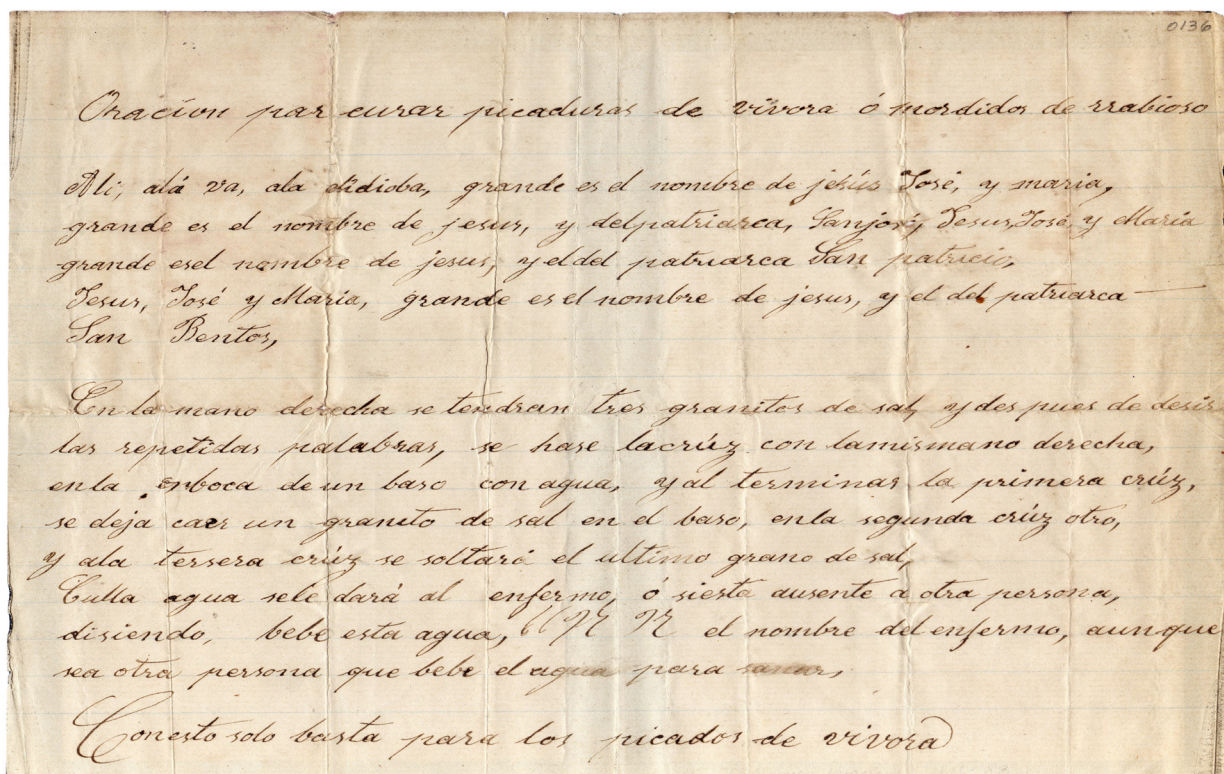 0136
Oracion par curar picaduras de vivora ó mordidos de rrabioso
Ali, alá va, ala grande es el nombre de jesús José, y maria,
grande es el nombre de jesus, y delpatriarca, Sanjosé, Jesus, José, y María
grande esel nombre de jesus, yeldel patriarca San patricio,
Jesus, José y María, grande esel nombre de jesus, y el del patriarca
San Bentos,
En la mano derecha se tendran tres granitos de sal, ydes pues de desir
las repetidas palabras, se hase lacrúz con lamismano derecha,
enla enboca deun baso con agua, yal terminar la primera crúz,
se deja caer un granito de sal en el baso, enla segunda crúz otro,
y ala tersera crúz se soltará el ultimo grano de sal,
Culla agua sele dará al enfermo, ó siesta ausente a otra persona,
disiendo, bebe esta agua, el nombre delenfermo, aunque
sea otra persona que bebe el agua para sanar,
Conesto solo basta para los picados de vivora